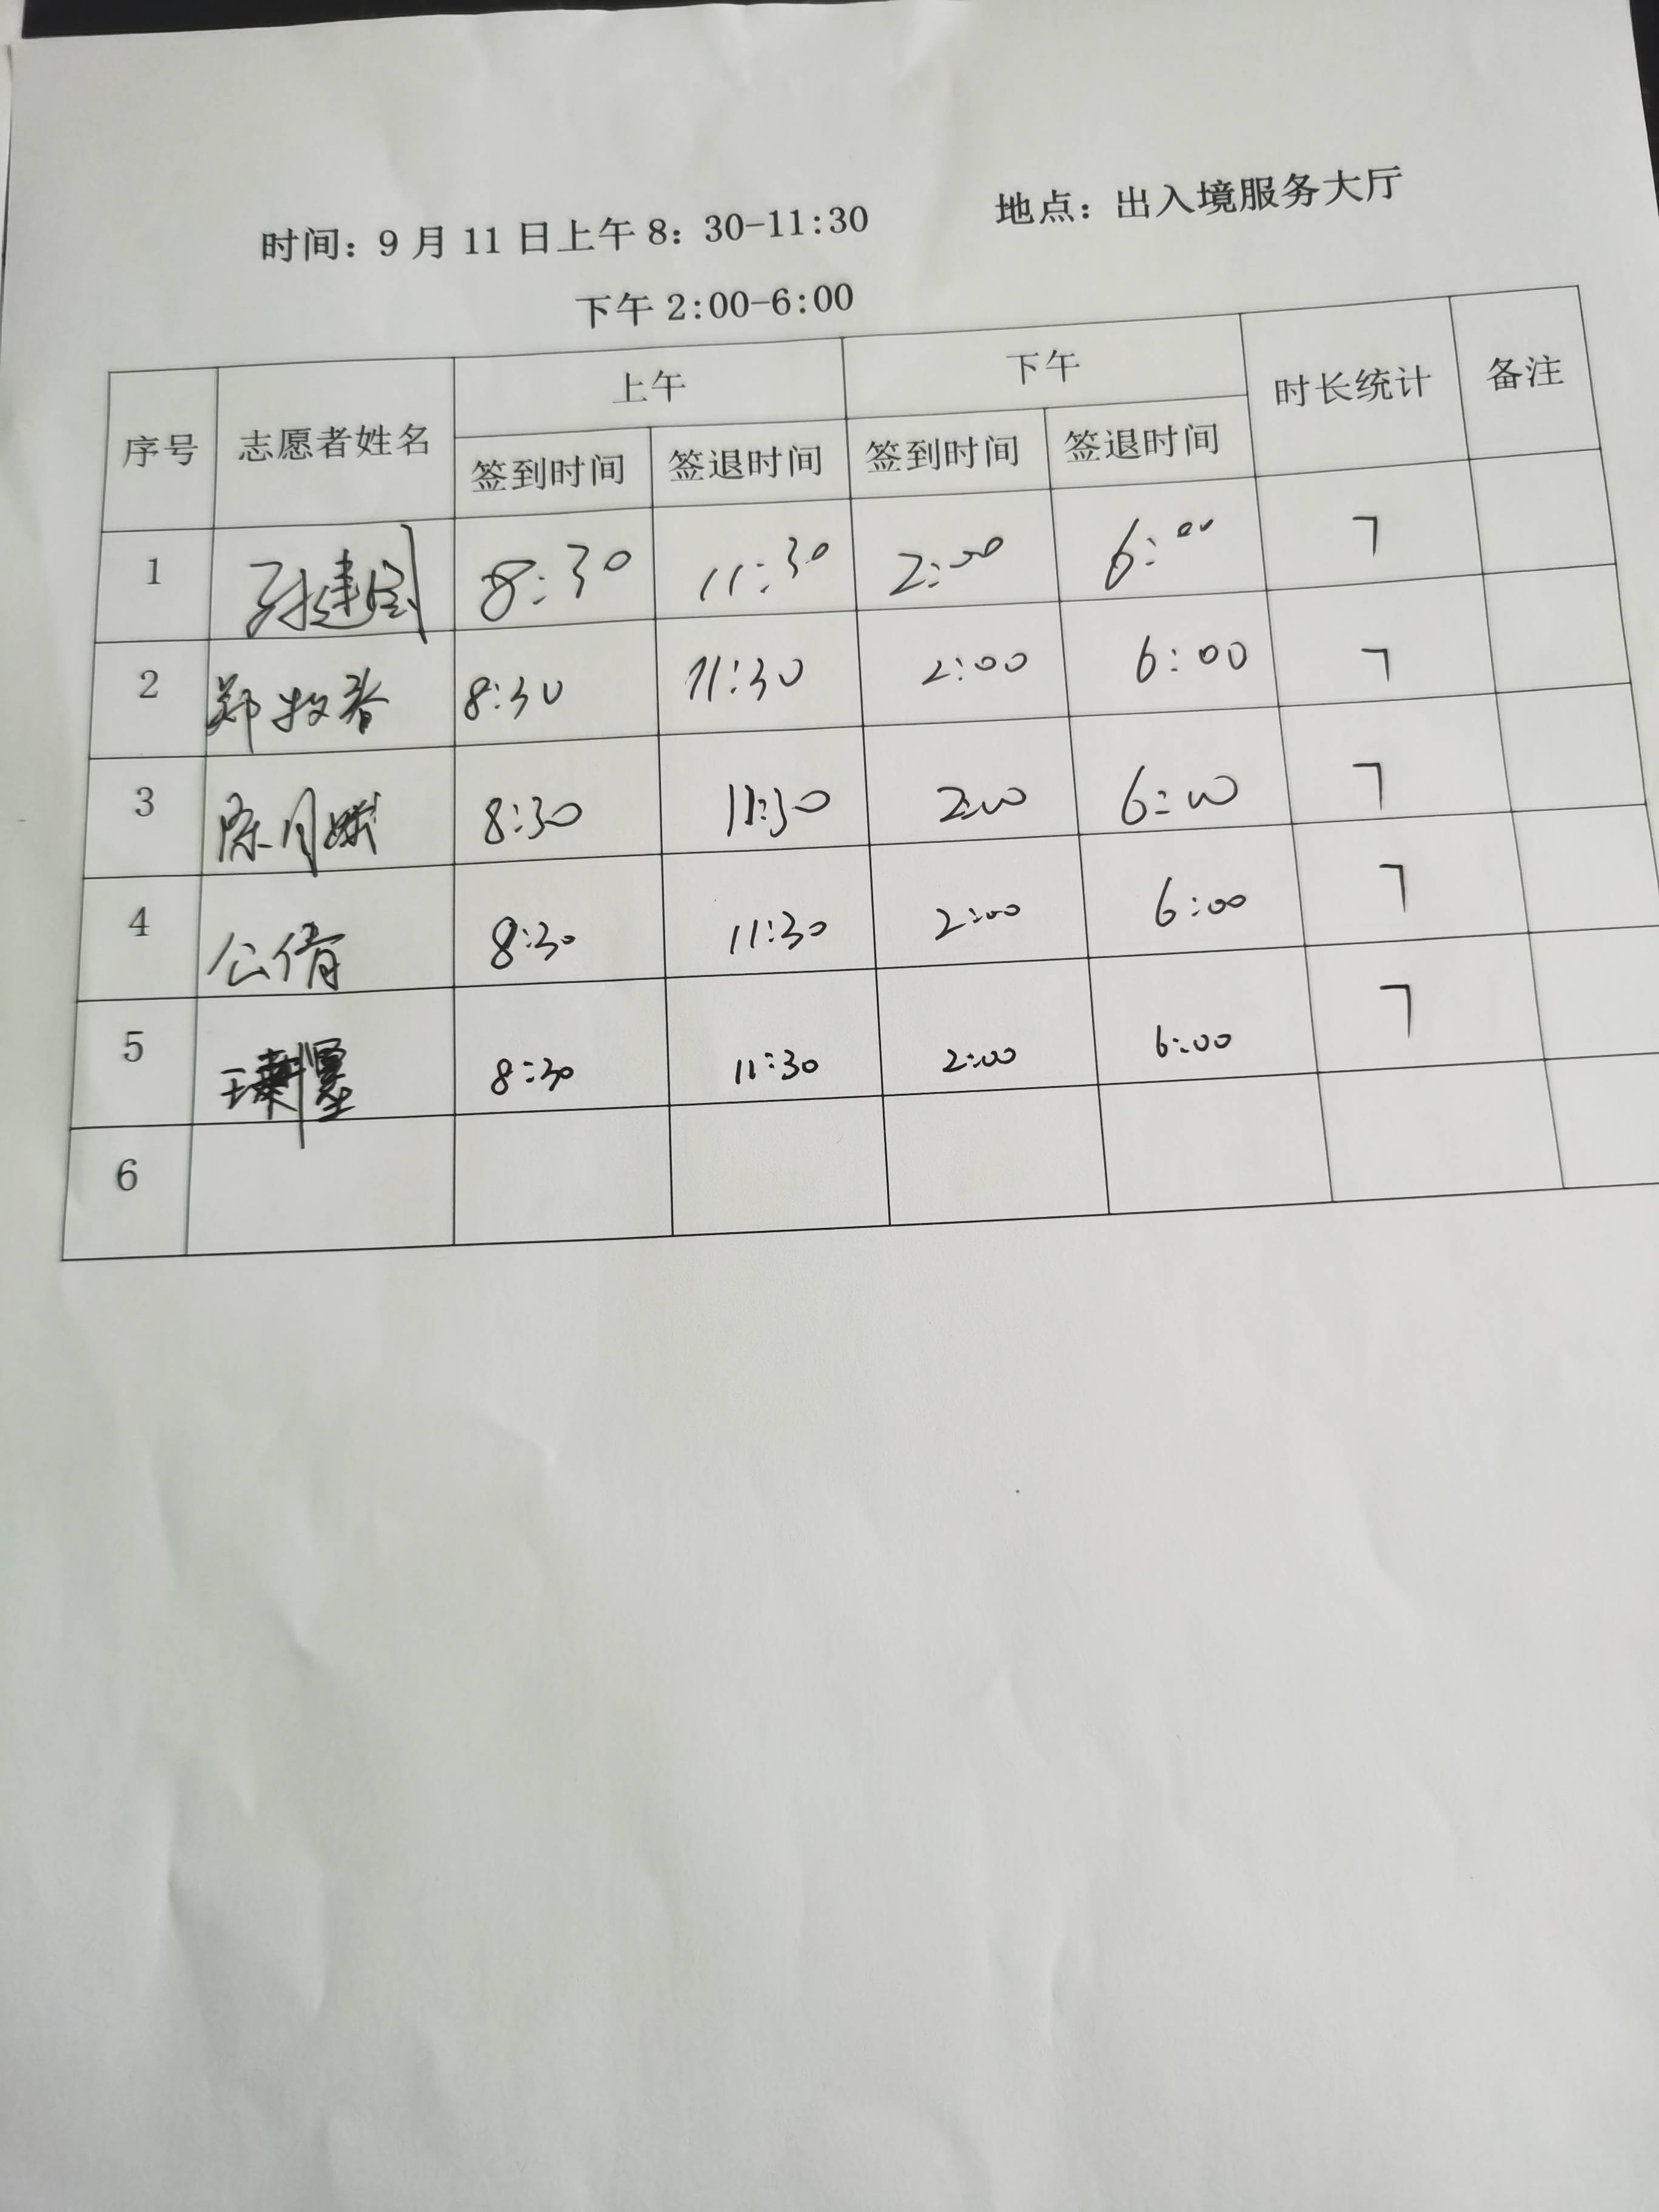 时间：9月11日上午8：30-11:30 地点：出入境服务大厅
下午2:00-6:00
序号 志愿者姓名 上午 下午 时长统计 备注
签到时间 签退时间 签到时间 签退时间
1 8:30 11:30 2:00 6:00 7
2 郑牧春 8:30 11:30 2:00 6:00 7
3 陈月娥 8:30 11:30 2:00 6:00 7
4 公倩 8:30 11:30 2:00 6:00 7
5 8:30 11:30 2:00 6:00 7
6